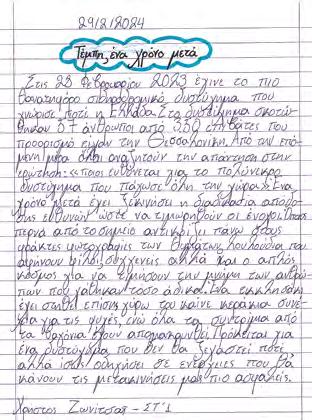 29/2/2024
Τέμπη, ένα χρόνο μετά
Στις 28 Φεβρουαρίου 2023 έγινε το πιο
θανατηφόρο σιδηροδρομικό δυστύχημα που
γνώρισε ποτέ η Ελλάδα. Στο δυστύχημα σκοτώ-
θηκαν 57 άνθρωποι από 350 επιβάτες που
προορισμό είχαν την Θεσσαλονίκη. Από την επό-
μενη μέρα όλοι αναζητούν την απάντηση στην
ερώτηση: «ποιος ευθύνεται για το πολύνεκρο
δυστύχημα που πάγωσε όλη την χώρα;». Ένα
χρόνο μετά έχει ξεκινήσει η διαδικασία απόδο-
σης ευθυνών ώστε να τιμωρηθούν οι ένοχοι. Όποιος
περνά από το σημείο αντικρίζει πάνω στους
φράκτες φωτογραφίες των θυμάτων, λουλούδια που
αφήνουν φίλοι, συγγενείς αλλά και ο απλός
κόσμος για να τιμήσουν την μνήμη των ανθρώ-
πων που χάθηκαν τόσο άδικα. Ένα εκκλησάκι
έχει στηθεί επίσης γύρω του καίνε κεράκια συνέ-
χεια για τις ψυχές, ενώ όλα τα συντρίμια από
τα βαγόνια έχουν απομακρυνθεί. Πρόκειται για
ένα δυστύχημα που δεν θα ξεχαστεί ποτέ
αλλά ίσως οδηγήσει σε ενέργειες που θα
κάνουν τις μετακινήσεις μας πιο ασφαλείς.
Χρήστος Ζωνίτσας - ΣΤ'1